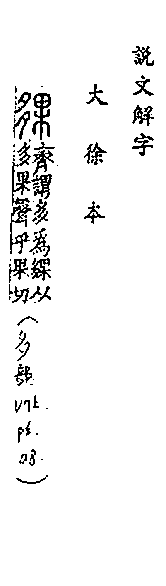 說文解字
大徐本
齊謂多爲夥从
多果聲乎果切
(多部